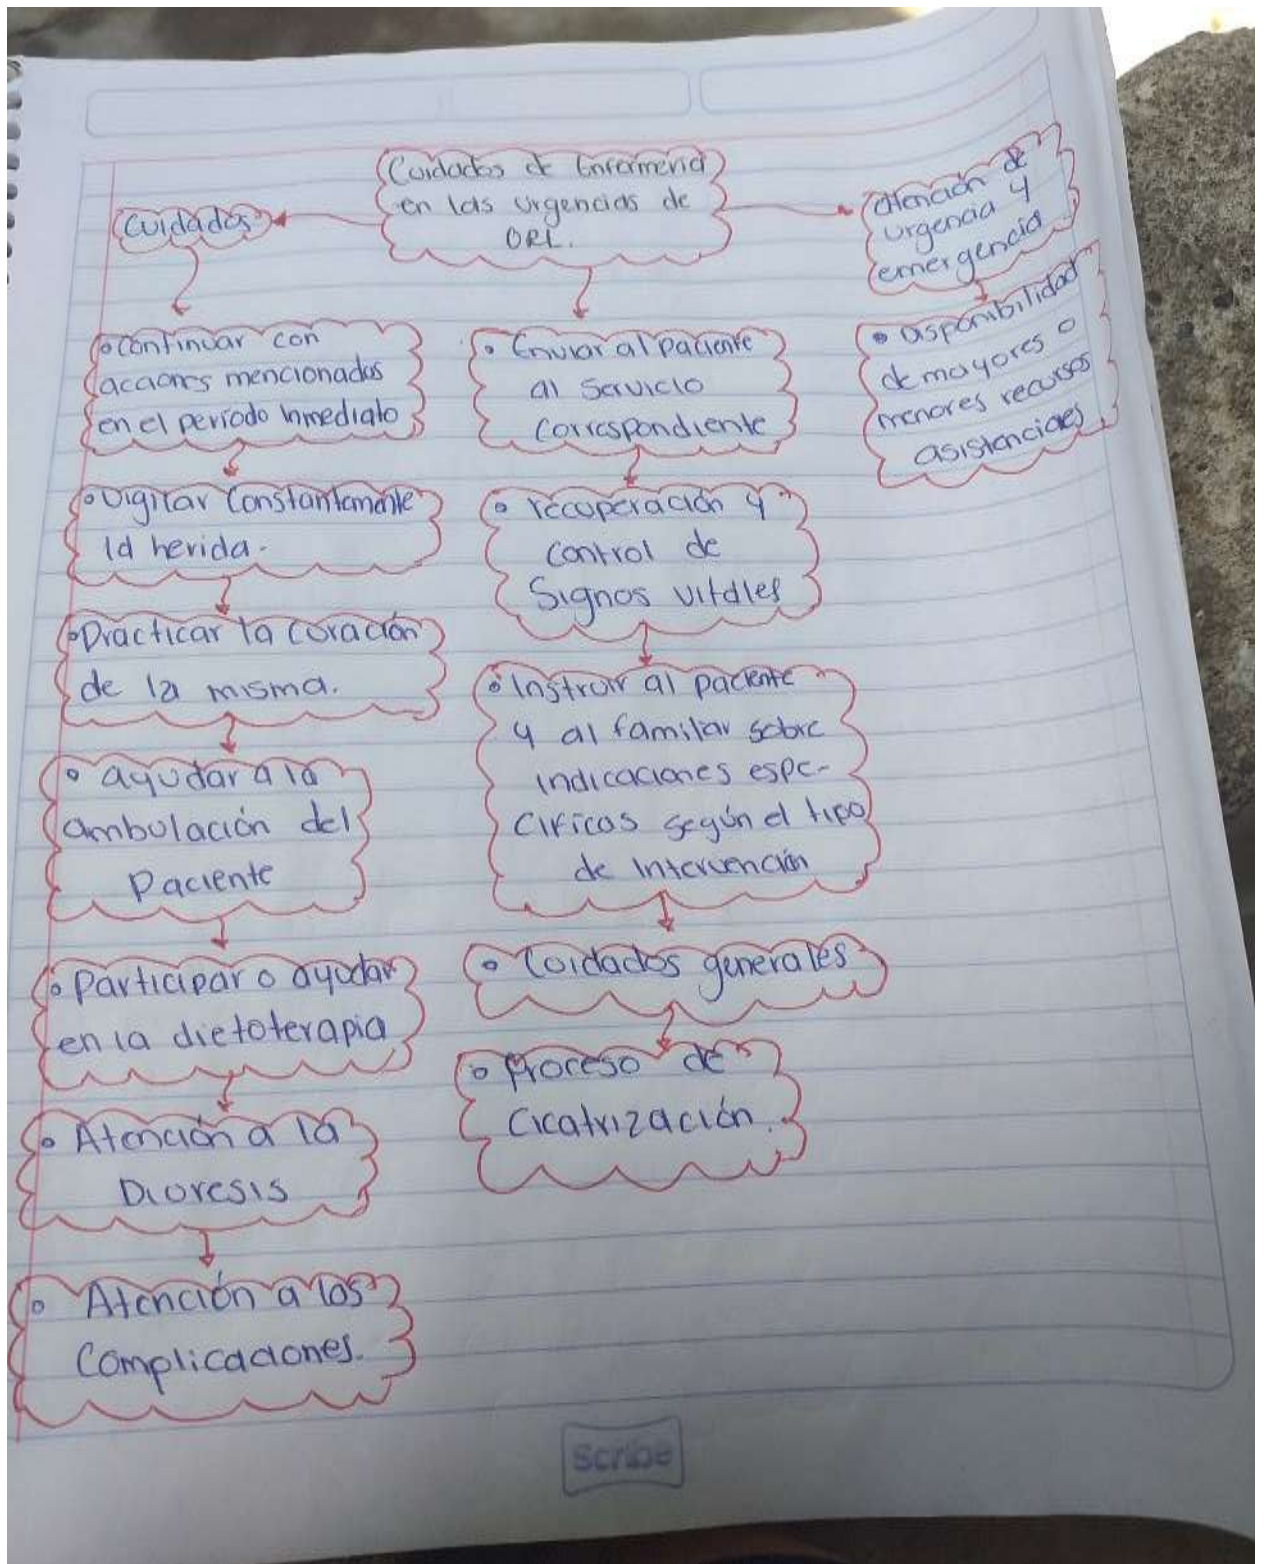 Cuidados de Enfermeria
en las urgencias de
ORL.
Cuidados
• Continuar con
acciones mencionadas
en el período inmediato
• Vigilar Constantemente
la herida.
• Practicar la curación
de la misma.
• ayudar a la
ambulación del
Paciente
• Participar o ayudar
en la dietoterapia
• Atención a la
Diuresis
• Atención a las
Complicaciones.
• Enviar al paciente
al servicio
correspondiente
• recuperación y
control de
Signos vitales
• Instruir al paciente
y al familiar sobre
indicaciones espe-
cificas según el tipo
de intervención
• Cuidados generales
• Proceso de
Cicatrización.
Atención de
urgencia y
emergencia
• Disponibilidad
de mayores o
menores recursos
asistenciales
Scribe